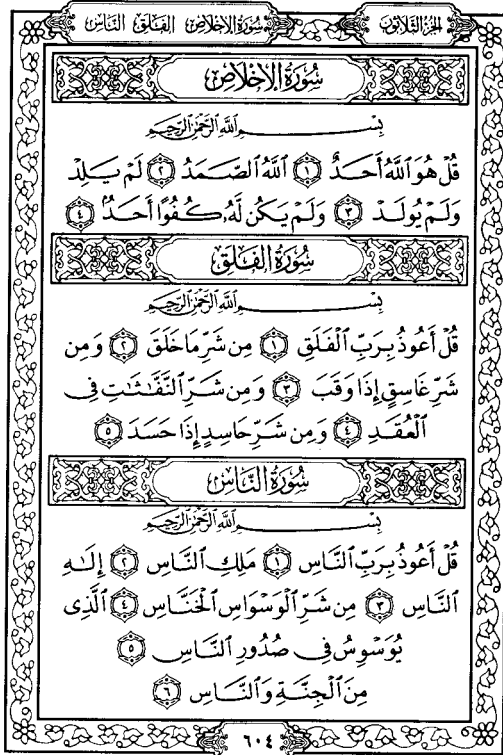 سُورَةُ الإِخْلَاصِ الفَلَقِ النَّاسِ
الجُزْءُ الثَّلَاثُونَ
سُورَةُ الإِخْلَاصِ
بِسْمِ اللَّهِ الرَّحْمَٰنِ الرَّحِيمِ
قُلْ هُوَ ٱللَّهُ أَحَدٌ ١ ٱللَّهُ ٱلصَّمَدُ ٢ لَمْ يَلِدْ
وَلَمْ يُولَدْ ٣ وَلَمْ يَكُن لَّهُۥ كُفُوًا أَحَدٌۢ ٤
سُورَةُ الفَلَقِ
بِسْمِ اللَّهِ الرَّحْمَٰنِ الرَّحِيمِ
قُلْ أَعُوذُ بِرَبِّ ٱلْفَلَقِ ١ مِن شَرِّ مَا خَلَقَ ٢ وَمِن
شَرِّ غَاسِقٍ إِذَا وَقَبَ ٣ وَمِن شَرِّ ٱلنَّفَّٰثَٰتِ فِى
ٱلْعُقَدِ ٤ وَمِن شَرِّ حَاسِدٍ إِذَا حَسَدَ ٥
سُورَةُ النَّاسِ
بِسْمِ اللَّهِ الرَّحْمَٰنِ الرَّحِيمِ
قُلْ أَعُوذُ بِرَبِّ ٱلنَّاسِ ١ مَلِكِ ٱلنَّاسِ ٢ إِلَٰهِ
ٱلنَّاسِ ٣ مِن شَرِّ ٱلْوَسْوَاسِ ٱلْخَنَّاسِ ٤ ٱلَّذِى
يُوَسْوِسُ فِى صُدُورِ ٱلنَّاسِ ٥
مِنَ ٱلْجِنَّةِ وَٱلنَّاسِ ٦
٦٠٤